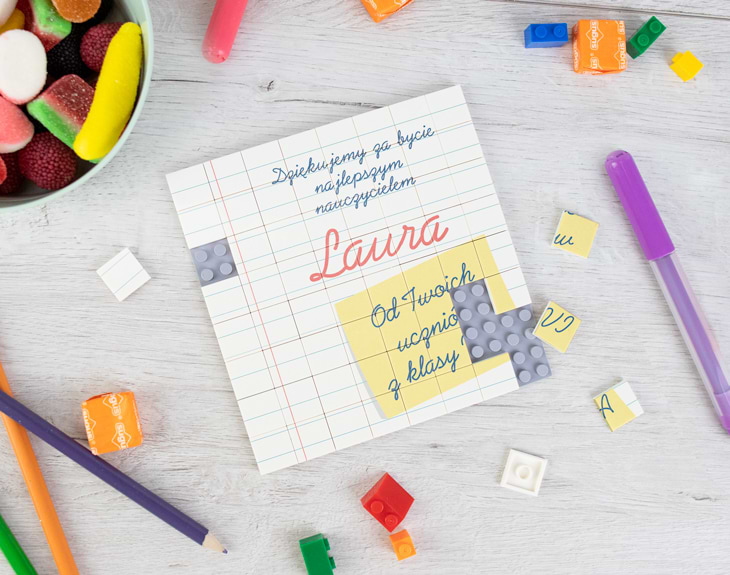 Dziękujemy za bycie
najlepszym
nauczycielem
Laura
Od Twoich
ucznió
z klasy
w
A
sugus
sugus